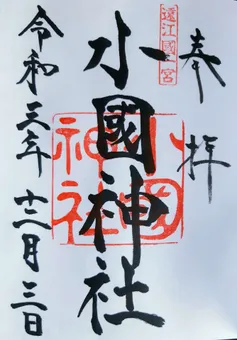 奉拝
遠江國一宮
小國神社
小國
神社
令和三年十二月三日